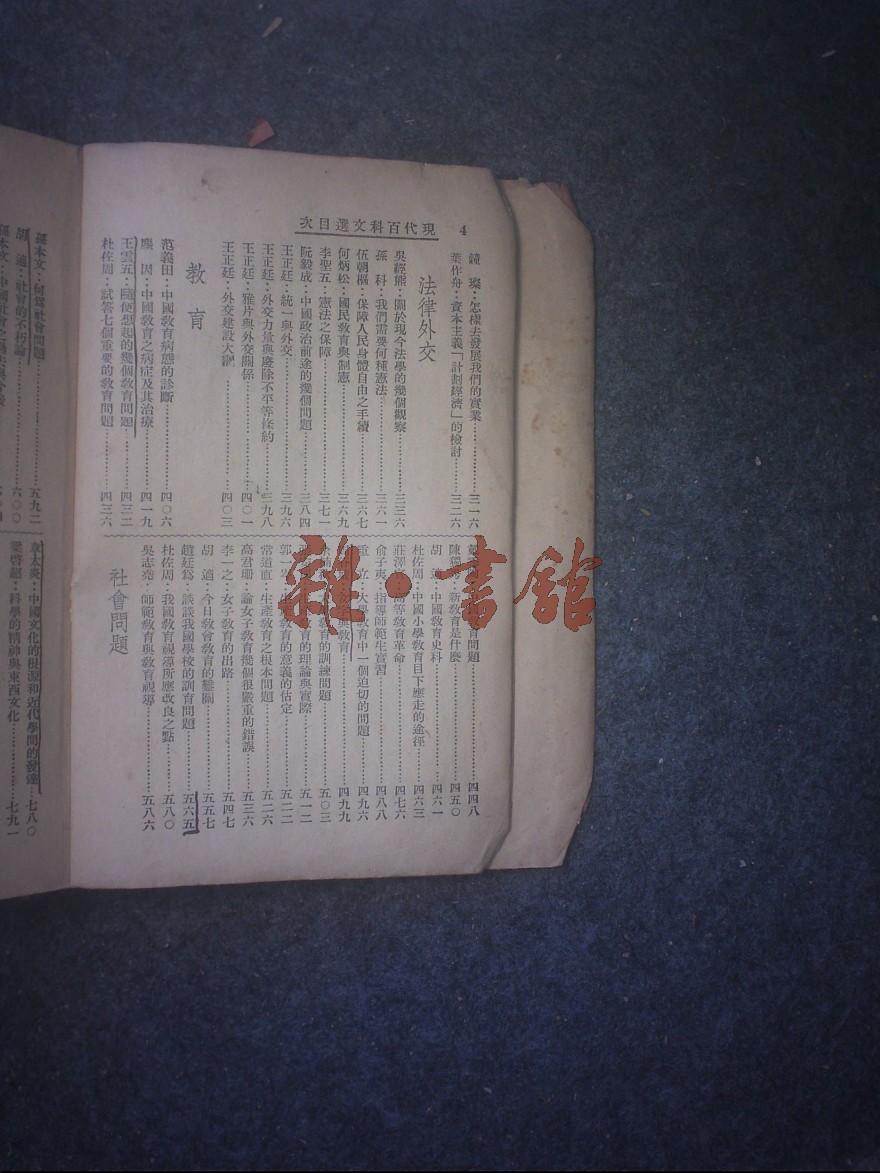 4
現代百科文選目次
鐘　璨：怎樣去發展我們的實業……三一六
葉作舟：資本主義「計劃經濟」的檢討……三二六
法律外交
吳經熊：關於現今法學的幾個觀察……三三六
孫　科：我們需要何種憲法……三六一
伍朝樞：保障人民身體自由之手續……三六七
何炳松：國民教育與制憲……三六九
李聖五：憲法之保障……三七一
阮毅成：中國政治前途的幾個問題……三八四
王正廷：統一與外交……三九六
王正廷：外交力量與廢除不平等條約……三九八
王正廷：雅片與外交關係……四〇一
王正廷：外交建設大綱……四〇三
教育
范義田：中國教育病態的診斷……四〇六
塵　因：中國教育之病症及其治療……四一九
王雲五：隨便想起的幾個教育問題……四三二
杜佐周：試答七個重要的教育問題……四三六
育問題……四四八
陳獨秀：新教育是什麼……四五〇
胡　適：中國教育史料……四六一
杜佐周：中國小學教育目下應走的途徑……四六三
莊澤宣：高等教育革命……四七六
俞子夷：指導師範生實習……四八八
重　立：大學教育中一個迫切的問題……四九六
與教育……四九九
教育的訓練問題……五〇三
教育的理論與實際……五一二
郭一岑：教育的意義的估定……五二二
常道直：生產教育之根本問題……五二六
高君珊：論女子教育幾個很嚴重的錯誤……五三六
李一之：女子教育的出路……五四七
胡　適：今日教會教育的難關……五五七
趙廷爲：談談我國學校的訓育問題……五六五
杜佐周：我國教育視導所應改良之點……五八〇
吳志堯：師範教育與教育視導……五八六
社會問題
孫本文：何爲社會問題……五九二
胡　適：社會的不朽論……六〇〇
孫本文：中國社會之
章太炎：中國文化的根源和近代學問的發達……七八〇
梁啓超：科學的精神與東西文化……七九一
雜·書館